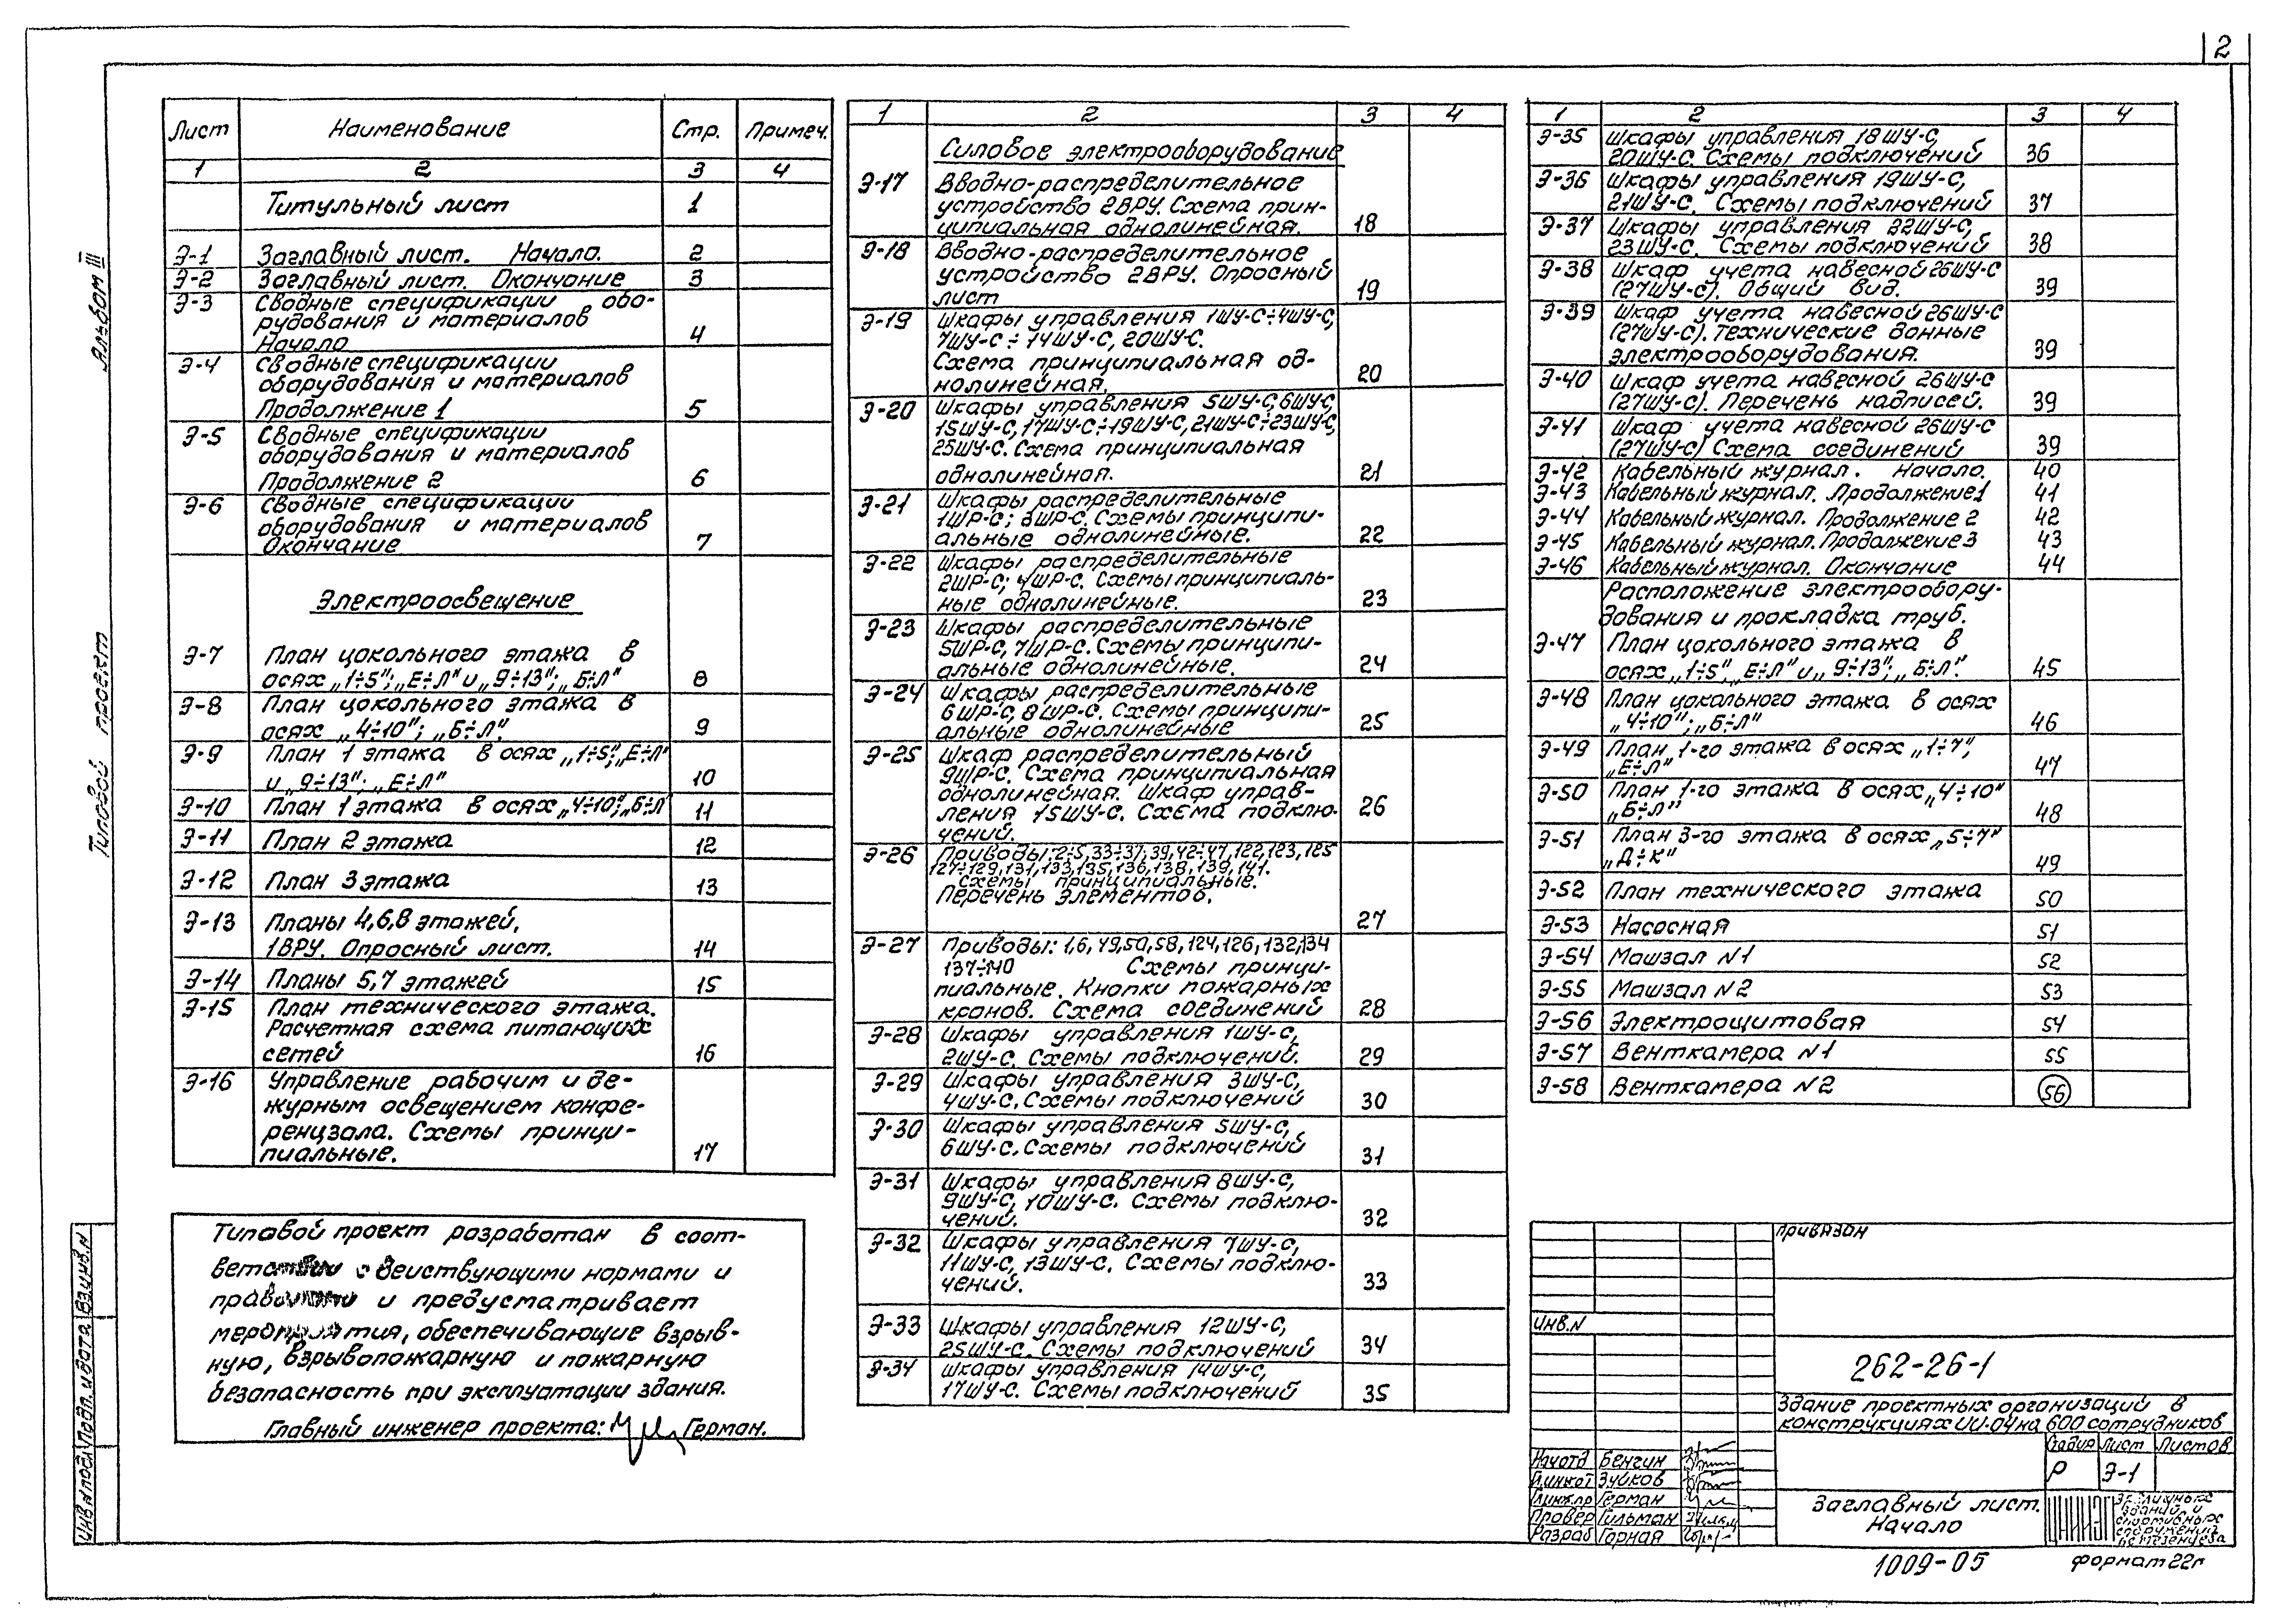 2
Альбом III
Типовой проект
Лист Наименование Стр. Примеч.
1 2 3 4
Титульный лист 1
Э-1 Заглавный лист. Начало. 2
Э-2 Заглавный лист. Окончание 3
Э-3 Сводные спецификации обо-
рудования и материалов
Начало 4
Э-4 Сводные спецификации
оборудования и материалов
Продолжение 1 5
Э-5 Сводные спецификации
оборудования и материалов
Продолжение 2 6
Э-6 Сводные спецификации
оборудования и материалов
Окончание 7
Электроосвещение
Э-7 План цокольного этажа в
осях „1÷5"; „Е÷Л" и „9÷13"; „Б÷Л" 8
Э-8 План цокольного этажа в
осях „4÷10"; „Б÷Л". 9
Э-9 План 1 этажа в осях „1÷5"; „Е÷Л"
и „9÷13"; „Е÷Л" 10
Э-10 План 1 этажа в осях „4÷10"; „Б÷Л" 11
Э-11 План 2 этажа 12
Э-12 План 3 этажа 13
Э-13 Планы 4,6,8 этажей,
1ВРУ. Опросный лист. 14
Э-14 Планы 5,7 этажей 15
Э-15 План технического этажа.
Расчетная схема питающих
сетей 16
Э-16 Управление рабочим и де-
журным освещением конфе-
ренцзала. Схемы принци-
пиальные. 17
Типовой проект разработан в соот-
ветствии с действующими нормами и
правилами и предусматривает
мероприятия, обеспечивающие взрыв-
ную, взрывопожарную и пожарную
безопасность при эксплуатации здания.
Главный инженер проекта: Герман.
1 2 3 4
Силовое электрооборудование
Э-17 Вводно-распределительное
устройство 2ВРУ. Схема прин-
ципиальная однолинейная. 18
Э-18 Вводно-распределительное
устройство 2ВРУ. Опросный
лист 19
Э-19 Шкафы управления 1ШУ-С÷4ШУ-С,
7ШУ-С÷14ШУ-С, 20ШУ-С.
Схема принципиальная од-
нолинейная. 20
Э-20 Шкафы управления 5ШУ-С, 6ШУ-С,
15ШУ-С, 17ШУ-С÷19ШУ-С, 21ШУ-С÷23ШУ-С,
25ШУ-С. Схема принципиальная
однолинейная. 21
Э-21 Шкафы распределительные
1ШР-С; 3ШР-С. Схемы принципи-
альные однолинейные. 22
Э-22 Шкафы распределительные
2ШР-С; 4ШР-С. Схемы принципиаль-
ные однолинейные. 23
Э-23 Шкафы распределительные
5ШР-С, 7ШР-С. Схемы принципи-
альные однолинейные. 24
Э-24 Шкафы распределительные
6ШР-С, 8ШР-С. Схемы принципи-
альные однолинейные 25
Э-25 Шкаф распределительный
9ШР-С. Схема принципиальная
однолинейная. Шкаф управ-
ления 15ШУ-С. Схема подклю-
чений. 26
Э-26 Приводы: 2÷5, 33÷37, 39, 42÷47, 122, 123, 125
127÷129, 131, 133, 135, 136, 138, 139, 141.
Схемы принципиальные.
Перечень элементов. 27
Э-27 Приводы: 1,6, 49,50, 58, 124, 126, 132, 134
137÷140 Схемы принци-
пиальные. Кнопки пожарных
кранов. Схема соединений 28
Э-28 Шкафы управления 1ШУ-С,
2ШУ-С. Схемы подключений. 29
Э-29 Шкафы управления 3ШУ-С,
4ШУ-С. Схемы подключений 30
Э-30 Шкафы управления 5ШУ-С,
6ШУ-С. Схемы подключений 31
Э-31 Шкафы управления 8ШУ-С,
9ШУ-С, 10ШУ-С. Схемы подклю-
чений. 32
Э-32 Шкафы управления 7ШУ-С,
11ШУ-С, 13ШУ-С. Схемы подклю-
чений. 33
Э-33 Шкафы управления 12ШУ-С,
25ШУ-С. Схемы подключений 34
Э-34 Шкафы управления 14ШУ-С,
17ШУ-С. Схемы подключений 35
1 2 3 4
Э-35 Шкафы управления 18ШУ-С,
20ШУ-С. Схемы подключений 36
Э-36 Шкафы управления 19ШУ-С,
21ШУ-С. Схемы подключений 37
Э-37 Шкафы управления 22ШУ-С,
23ШУ-С. Схемы подключений 38
Э-38 Шкаф учета навесной 26ШУ-С
(27ШУ-С). Общий вид. 39
Э-39 Шкаф учета навесной 26ШУ-С
(27ШУ-С). Технические данные
электрооборудования. 39
Э-40 Шкаф учета навесной 26ШУ-С
(27ШУ-С). Перечень надписей. 39
Э-41 Шкаф учета навесной 26ШУ-С
(27ШУ-С) Схема соединений 39
Э-42 Кабельный журнал. Начало. 40
Э-43 Кабельный журнал. Продолжение 1 41
Э-44 Кабельный журнал. Продолжение 2 42
Э-45 Кабельный журнал. Продолжение 3 43
Э-46 Кабельный журнал. Окончание 44
Расположение электрообору-
дования и прокладка труб.
Э-47 План цокольного этажа в
осях „1÷5" „Е÷Л" и „9÷13"; „Б÷Л". 45
Э-48 План цокольного этажа в осях
„4÷10"; „Б÷Л" 46
Э-49 План 1-го этажа в осях „1÷7",
„Е÷Л" 47
Э-50 План 1-го этажа в осях „4÷10"
„Б÷Л" 48
Э-51 План 3-го этажа в осях „5÷7"
„Д÷К" 49
Э-52 План технического этажа 50
Э-53 Насосная 51
Э-54 Машзал N1 52
Э-55 Машзал N2 53
Э-56 Электрощитовая 54
Э-57 Венткамера N1 55
Э-58 Венткамера N2 56
Привязан
Инв.N
262-26-1
Здание проектных организаций в
конструкциях ИИ-04 на 600 сотрудников
Стадия Лист Листов
Р Э-1
Нач отд Бенгин
Гл.инж.от Зубков
Гл.инж.пр Герман
Провер Гильман
Разраб Горная
Заглавный лист.
Начало
ЦНИИЭП
зрелищных
зданий и
спортивных
сооружений
им Мезенцева
1009-05 формат 22г
Инв N подл Подп. и дата Взинв.N